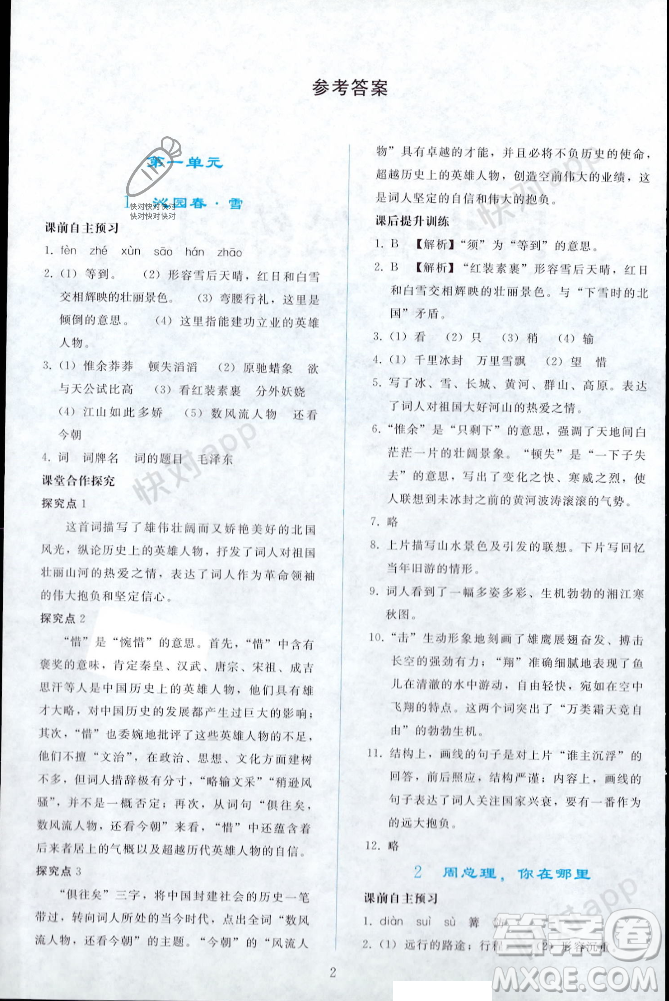 参考答案
第一单元
1 沁园春·雪
快对快对快对
快对快对快对
课前自主预习
1. fèn zhé xùn sāo hán zhāo
2. (1) 等到。 (2) 形容雪后天晴，红日和白雪
交相辉映的壮丽景色。 (3) 弯腰行礼，这里是
倾倒的意思。 (4) 这里指能建功立业的英雄
人物。
3. (1) 惟余莽莽 顿失滔滔 (2) 原驰蜡象 欲
与天公试比高 (3) 看红装素裹 分外妖娆
(4) 江山如此多娇 (5) 数风流人物 还看
今朝
4. 词 词牌名 词的题目 毛泽东
课堂合作探究
探究点 1
这首词描写了雄伟壮阔而又娇艳美好的北国
风光，纵论历史上的英雄人物，抒发了词人对祖国
壮丽山河的热爱之情，表达了词人作为革命领袖
的伟大抱负和坚定信心。
探究点 2
“惜”是“惋惜”的意思。首先，“惜”中含有
褒奖的意味，肯定秦皇、汉武、唐宗、宋祖、成吉
思汗等人是中国历史上的英雄人物，他们具有雄
才大略，对中国历史的发展都产生过巨大的影响；
其次，“惜”也委婉地批评了这些英雄人物的不足，
他们不擅“文治”，在政治、思想、文化方面建树不
多，但词人评价极有分寸，“略输文采”“稍逊风
骚”并不是一概否定。再次，从词句“俱往矣，
数风流人物，还看今朝”来看，“惜”中还蕴含着
后来者居上的气概以及超越历代英雄人物的自信。
探究点 3
“俱往矣”三字，将中国封建社会的历史一笔
带过，转向词人所处的当今时代，点出全词“数风
流人物，还看今朝”的主题。“今朝”的“风流人
物”具有卓越的才能，并且必将不负历史的使命，
超越历史上的英雄人物，创造空前伟大的业绩，这
是词人坚定的自信和伟大的抱负。
课后提升训练
1. B 【解析】“须”为“等到”的意思。
2. B 【解析】“红装素裹”形容雪后天晴，红日和
白雪交相辉映的壮丽景色。与“下雪时的北
国”矛盾。
3. (1) 看 (2) 只 (3) 稍 (4) 输
4. (1) 千里冰封 万里雪飘 (2) 望 惜
5. 写了冰、雪、长城、黄河、群山、高原。表
达了词人对祖国大好河山的热爱之情。
6. “惟余”是“只剩下”的意思，强化了白茫
茫一片的壮阔景象。“顿失”是“一下子失
去”的意思，写出变化之快、寒威之烈，使
人联想到未冰封之前的黄河波涛滚滚的气势。
7. 略
8. 上片描写山水景色及引发的联想。下片回忆
当年旧游的情形。
9. 词人看到了一幅多姿多彩、生机勃勃的湘江寒
秋图。
10. “击”生动形象地刻画了雄鹰展翅奋发、搏击
长空的壮健有力；“翔”准确而细腻地表现了鱼
儿在清澈的水中游动，自由轻快，宛如在空中
飞翔的特点。这两个词突出了“万类霜天竞自
由”的勃勃生机。
11. 结构上，画线的句子是对上片“谁主沉浮”的
回答，前后照应，结构严谨；内容上，画线的
句子表达了词人以国家兴衰，要有一番作为的
远大抱负。
12. 略
2 周总理，你在哪里
课前自主预习
1. diàn suì sù 篝
2. (1) 远行的路途；行程 (2) 形容沉重
2
快对app
快对app
快对app
快对app
答案圈
MXQE.COM